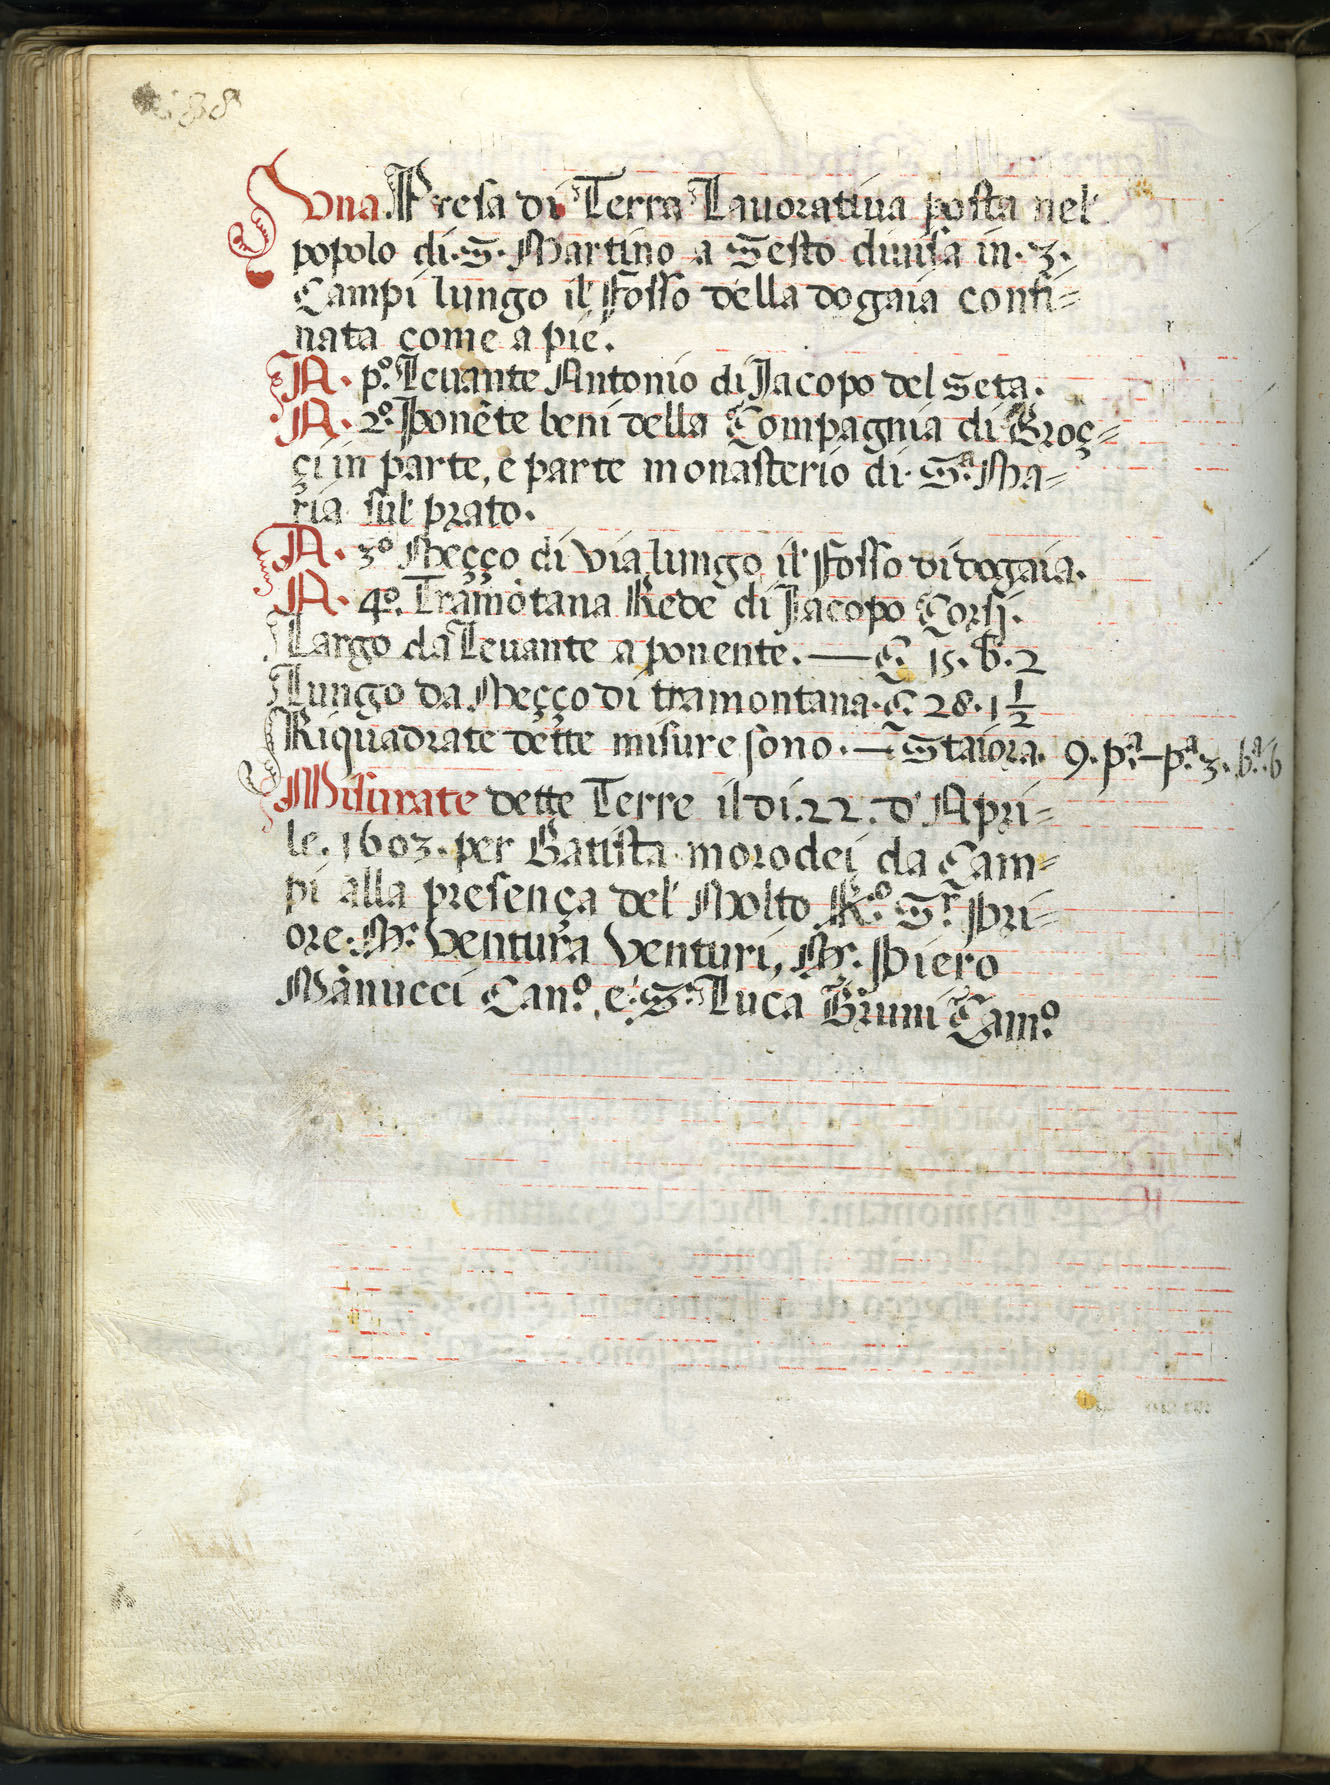 138
Una Presa di Terra Lauoratiua posta nel
popolo di·S·Martino a Sesto diuisa in·3·
Campi lungo il Fosso della dogaia confi=
nata come a pie.
A· pº. Leuante Antonio di Jacopo del Seta.
A· 2º. Ponẽte beni della Compagnia di Broç=
çi in parte, e parte monasterio di·Sª. Ma=
ria sul prato.
A· 3º Meçço di via lungo il Fosso di dogaia.
A· 4º. Tramõtana Rede di Jacopo Corsi.
Largo da Leuante a ponente.— C. 15. b. 2
Lungo da Meçço di tramontana. C. 28. 1 1/2
Riquadrate dette misure sono.— Staiora. 9. pª.— pª. 3. bª. 6
Misurate dette Terre il di. 22. d'Apri=
le. 1603. per Batista morodei da Cam=
pi alla presença del Molto R.º S.r Pri=
ore. M.r Ventura Venturi, M.r Piero
Mãnucci Can.º, e S.r Luca Bruni Cam.º